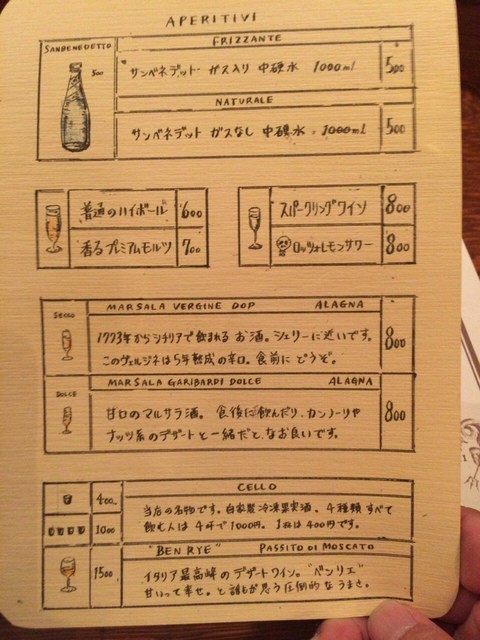 APERITIVI
SANBENEDETTO
500
FRIZZANTE
サンベネデット ガス入り 中硬水 1000ml 500
NATURALE
サンベネデット ガスなし 中硬水 1000ml 500
普通のハイボール 600
香るプレミアムモルツ 700
スパークリングワイン 800
ロッツォレモンサワー 800
SECCO
MARSALA VERGINE DOP ALAGNA
1773年からシチリアで飲まれるお酒。シェリーに近いです。
このヴェルジネは5年熟成の辛口。食前にどうぞ。
800
DOLCE
MARSALA GARIBARDI DOLCE ALAGNA
甘口のマルサラ酒。食後に飲んだり、カンノーリや
ナッツ系のデザートと一緒だと、なお良いです。
800
CELLO
400
1000
当店の名物です。自家製冷凍果実酒。4種類すべて
飲む人は4杯で1000円。1杯は400円です。
"BEN RYE" PASSITO DI MOSCATO
1500
イタリア最高峰のデザートワイン。"ベンリエ"
甘いって幸せ。と誰もが思う圧倒的なうまさ。